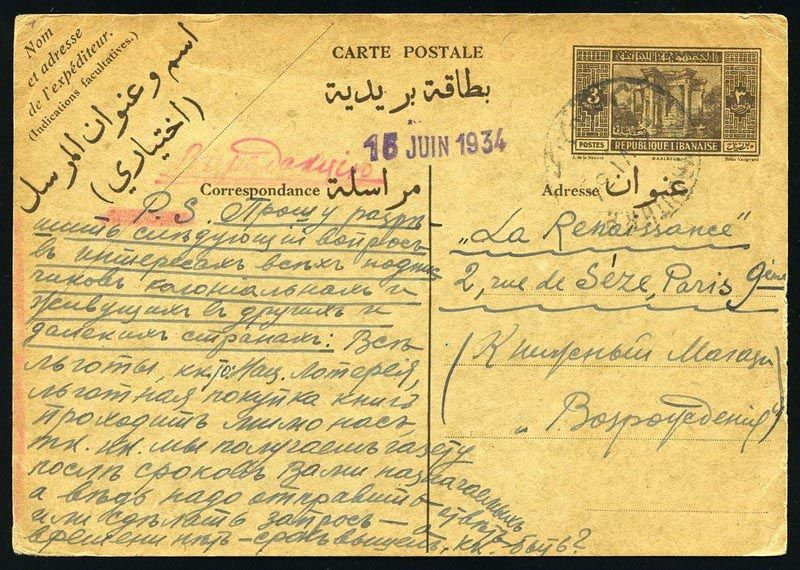 Nom
et adresse
de l'expéditeur.
(Indications facultatives.)
اسم وعنوان المرسل
(اختياري)
CARTE POSTALE
بطاقة بريدية
15 JUIN 1934
Correspondance مراسلة
P.S. Прошу разрѣ-
шить слѣдующій вопросъ
въ интересахъ всѣхъ подпис
чиковъ колоніальныхъ и
живущихъ въ другихъ и
далекихъ странахъ: Всѣ
льготы, кк.то: Нац. Лотерея,
льготная покупка книгъ
проходитъ мимо насъ
тк. кк. мы получаемъ газету
послѣ сроковъ Вами назначаемыхъ
а вѣдь надо отправить отвѣтъ
или сдѣлать запросъ — а
времени нѣтъ — срокъ вышелъ, кк. быть?
3
POSTES
REPUBLIQUE LIBANAISE
BAALBECK
Adresse عنوان
„La Renaissance"
2, rue de Sèze, Paris 9ème
(Книжный Магаз)
„Возрожденія"